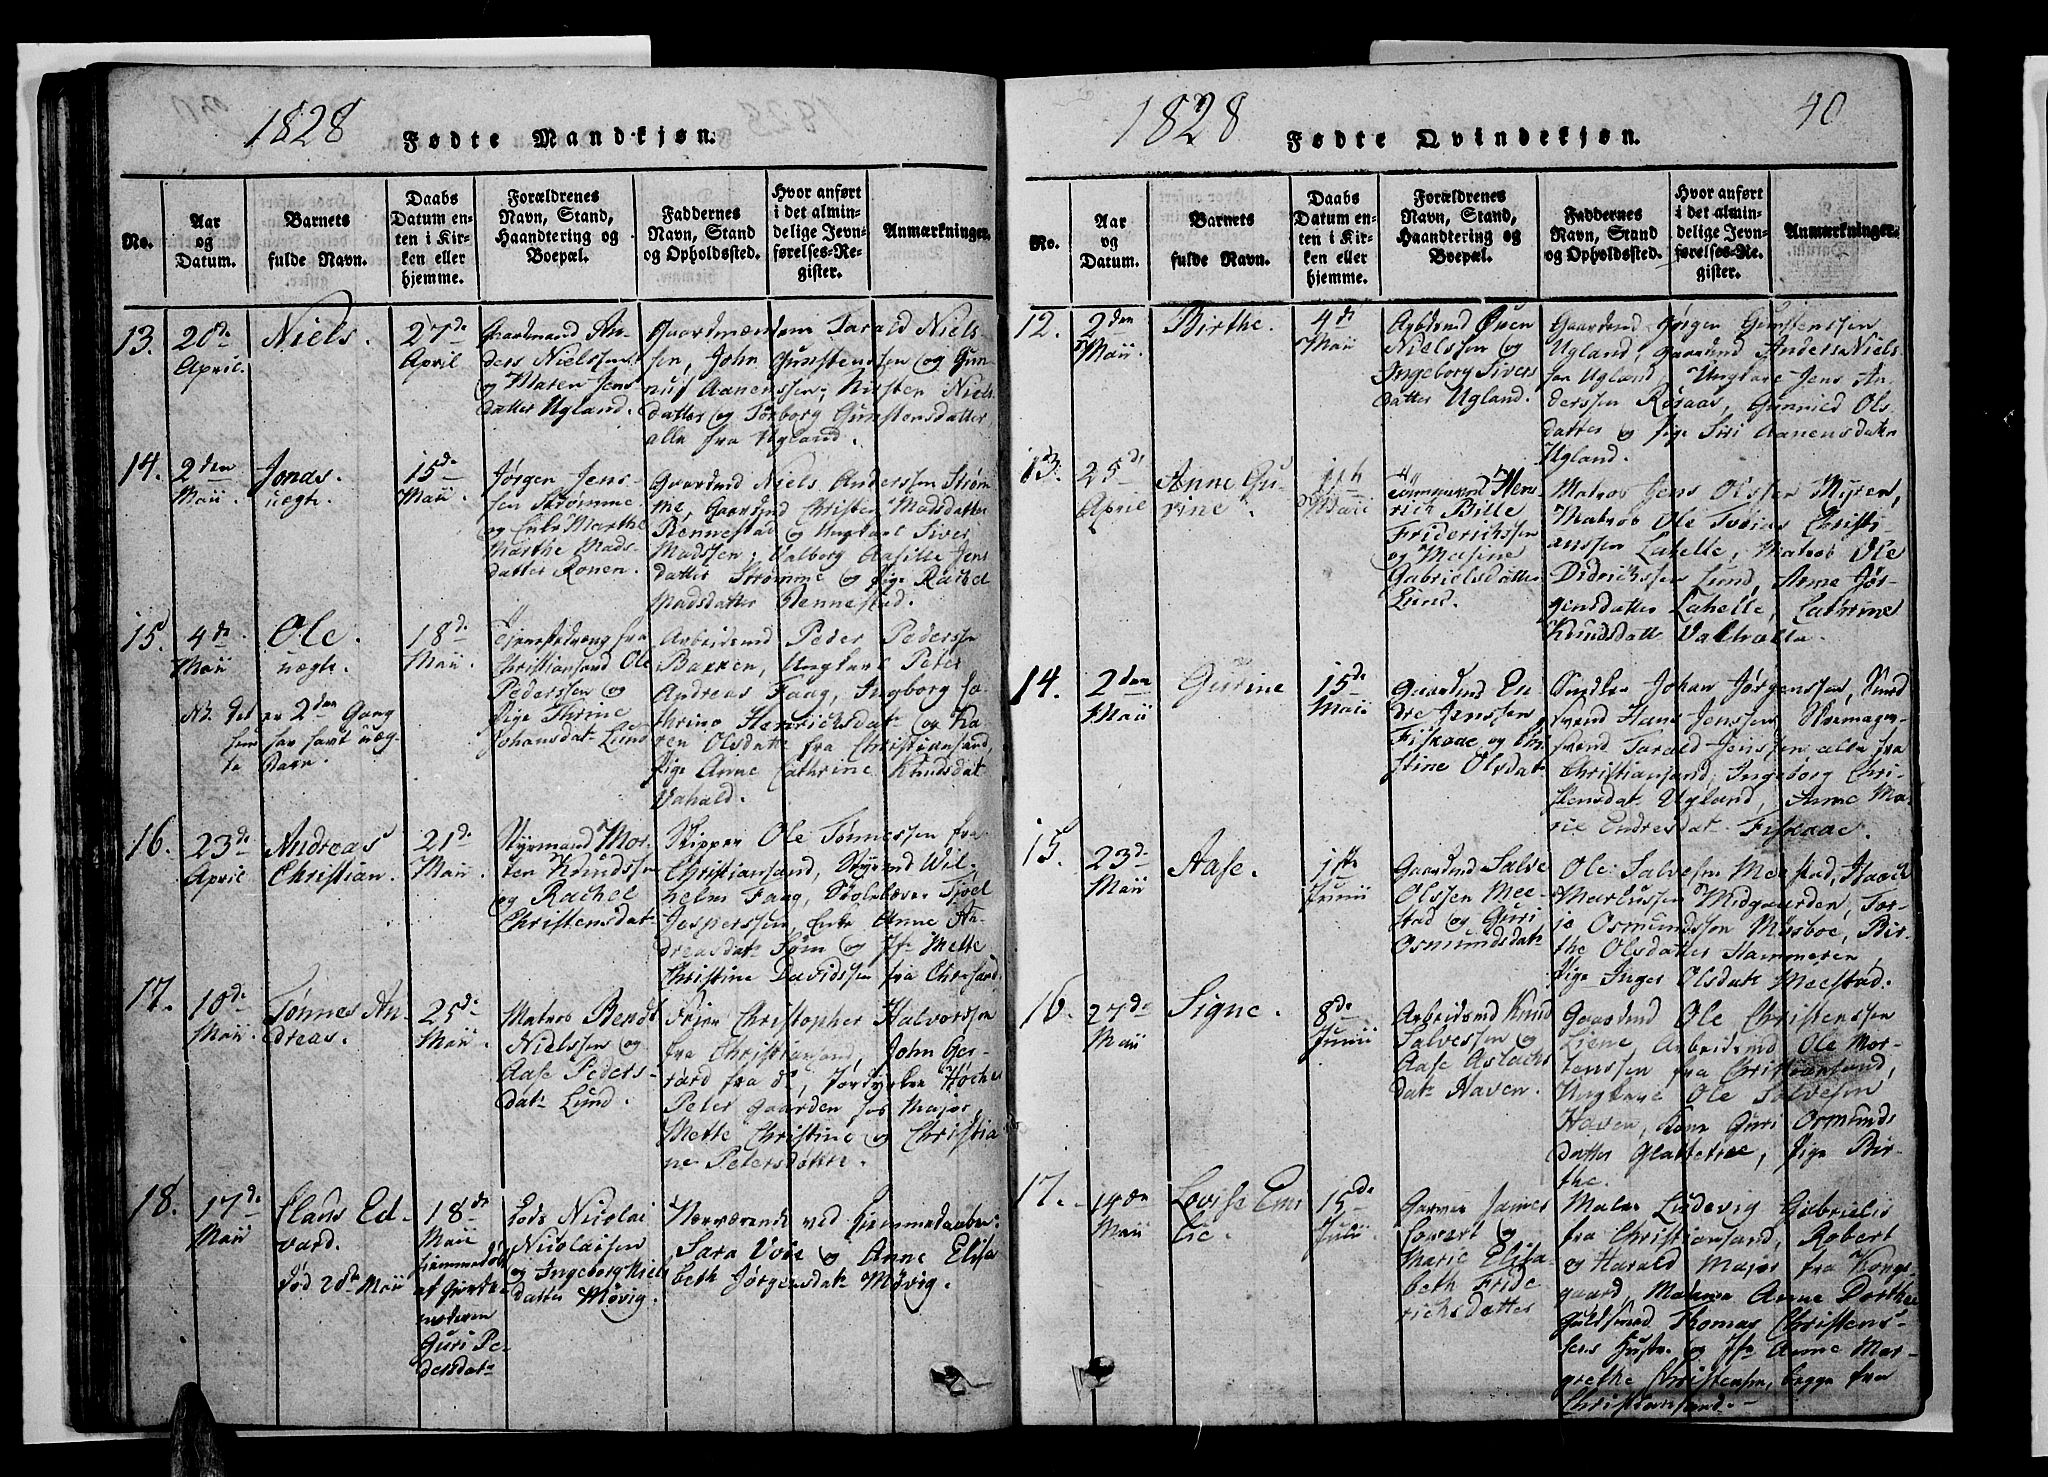 1828
Fødte Mandkjøn.
No.
Aar
og
Datum.
Barnets
fulde Navn.
Daabs
Datum en-
ten i Kir-
ken eller
hjemme.
Forældrenes
Navn, Stand,
Haandtering og
Boepæl.
Faddernes
Navn, Stand
og Opholdssted.
Hvor anført
i det almin-
delige Jevn-
førelses-Re-
gister.
Anmærkninger.
13.
20de
April.
Niels.
27de
April
Gaardmand An-
ders Nielssen
og Maren Jens
datter Ugland.
Gaardmændene Tarald Niels-
sen, John Gunstenssen og Gun-
nuf Aanenssen; Kirsten Niels
datter og Torborg Gunstensdatter
alle fra Ugland.
14.
2den
Maii.
Jonas.
uegte.
15de
Maii.
Jørgen Jens-
sen Strømme
og Enke Marthe
Marthe Mads-
datter Ronen.
Gaardmd Niels Anderssen Strøm-
me, Gaardmd Christen Madsdatter
Rennestad og Ungkarl Siver
Madssen; Valborg Aasille Jens
datter Strømme og Pige Rachel
Madsdatter Rennestad.
15.
4de
Maii
Ole.
uægte.
18de
Maii.
Tjenestedreng fra
Christiansand Ole
Pederssen og
Pige Thrine
Johansdatr Lund
NB. Det er 2den Gang
hun har havt uæg-
te Barn.
Arbeidsmd Peder Pederssen
Bakken, Ungkarl Peter
Andreas Faag, Ingborg Ca-
thrine Henrichsdatr og Ka-
ren Olsdatr fra Christiansand
Pige Anne Cathrine Knudsdat
Vahald.
16.
23de
April
Andreas
Christian.
21de
Maii.
Styrmand Mor-
ten Knudssen
og Rachel
Christensdatr
Skipper Ole Tønnessen fra
Christiansand, Styrmd Wil-
helm Faag, Skolelærer Tjøel
Jesperssen, Enke Anne An-
dreasdatr Tøm og Jfr Mette
Christine Davidssen fra Chrsand.
17.
10de
Maii.
Tønnes An-
dreas.
25de
Maii.
Matros Bendt
Nielssen og
Aase Peders-
datr Lund.
Christopher Halvorssen
fra Christiansand, John Ger-
rard fra do,
Peter Gaarden, hos Major
Mette Christine og Christia
ne Petersdøttre.
18.
17de
Maii
Claus Ed-
vard.
død 20de Maii
18de
Maii
hjemmedøbt
af
moderen
Guri Pe-
dersdatr
Lods Nicolai
Nicolaisen
og Ingeborg Niels
datter Møvig.
Nærværende ved Hjemmedaaben:
Sara Voie og Anne Elisa
beth Jørgensdatr Møvig.
1828
Fødte Qvindekjøn.
40
No.
Aar
og
Datum.
Barnets
fulde Navn.
Daabs
Datum en-
ten i Kir-
ken eller
hjemme.
Forældrenes
Navn, Stand,
Haandtering og
Boepæl.
Faddernes
Navn, Stand
og Opholdssted.
Hvor anført
i det almin-
delige Jevn-
førelses-Re-
gister.
Anmærkninger.
12.
2den
Maii
Birthe.
4de
Maii
Arbdsmd Øven
Nielssen og
Ingeborg Sivers
datter Ugland.
Gaardmd Jørgen Gunstenssen
Ugland, Gaardmd Anders Niels
sen Ugland, Ungkarl Jens An-
derssen Rosaas, Gunnild Ols
datter og Pige Siri Aanensdatter
Ugland.
13.
25de
April
Anne Gu-
rine.
Maii
Tømmermd Hen-
rich Bille
Friderichssen
og Maline
Gabrielsdatter
Lund.
Matros Jens Olsten Myren,
Matros Ole Tobias Christi-
anssen Lahelle, Matros Ole
Didrichssen Lund, Anne Jør-
gensdatter Lahelle, Cathrine
Knudsdatt Valhalla.
14.
2den
Maii
Gurine
15de
Maii
Gaardmd En-
dre Jenssen
Fiskaae og En-
stine Olsdatr
Snedker Johan Jørgenssen, Smed
svend Hans Jenssen, Skomager-
svend Tarald Jenssen, alle fra
Christiansand; Ingeborg Chri-
stensdatr Ugland, Anne Ma-
rie Endresdatr Fiskaae.
15.
23de
Maii
Aase.
1ste
Junii
Gaardmd Salve
Olssen Mee-
stad og Guri
Osmundsdatr
Ole Salvesen Meestad,
Markussen Midgaarden, Tor-
je Osmundsson Mosboe, Bir-
the Olsdatter Hammeren,
Pige Inger Olsdatr Meestad.
16.
27de
Maii
Signe.
8de
Junii
Arbeidsmd Knud
Salvessen og
Aase Aslachs
datr Haven.
Gaardmd Ole Christenssen
Liene, Arbeidsmd Ole Mor-
tenssen fra Christiansand,
Ungkarl Ole Salvesen
Haven, Kone Guri Osmunds
datter Glattetræe, Pige Bir-
the.
17.
14de
Maii
Lovise Emi
lie.
15de
Junii
Garver James
Marie Elisa-
beth Fride
richsdatter
Maler Ludevig Gabrielis
fra Christiansand, Robert
og Harald Major fra Kongs
gaard, Madame Anne Dorthea
Guldsmed Thomas Christens-
sens Hustr. og Jfr Anne Mar-
grethe Christensen, begge fra
Christiansand.-